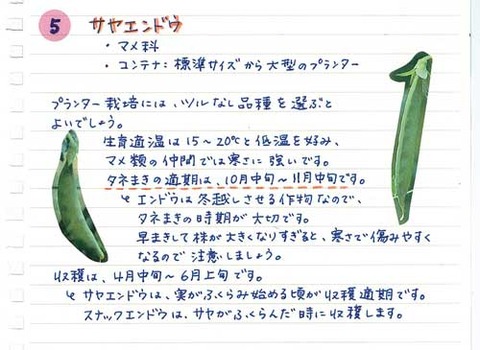 5 サヤエンドウ
・マメ科
・コンテナ：標準サイズから大型のプランター
プランター栽培には、ツルなし品種を選ぶと
よいでしょう。
生育適温は15～20℃と低温を好み、
マメ類の仲間では寒さに強いです。
タネまきの適期は、10月中旬～11月中旬です。
↳ エンドウは冬越しさせる作物なので、
タネまきの時期が大切です。
早まきして株が大きくなりすぎると、寒さで傷みやすく
なるので注意しましょう。
収穫は、4月中旬～6月上旬です。
↳ サヤエンドウは、実がふくらみ始める頃が収穫適期です。
スナックエンドウは、サヤがふくらんだ時に収穫します。